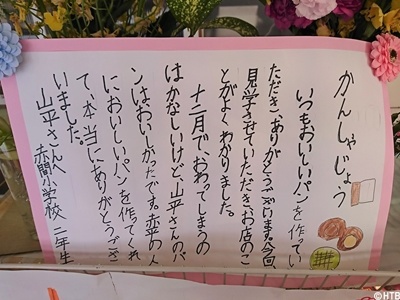 かんしゃじょう
いつもおいしいパンを作ってい
ただき、ありがとうございます。今回、
見学させていただきお店のこ
とがよくわかりました。
十二月で、おわってしまうの
はかなしいけど、山平さんのパ
ンはおいしかったです。赤平の人
においしいパンを作ってくれ
て、本当にありがとうござ
いました。
山平さんへ 赤間小学校 二年生
©HTB